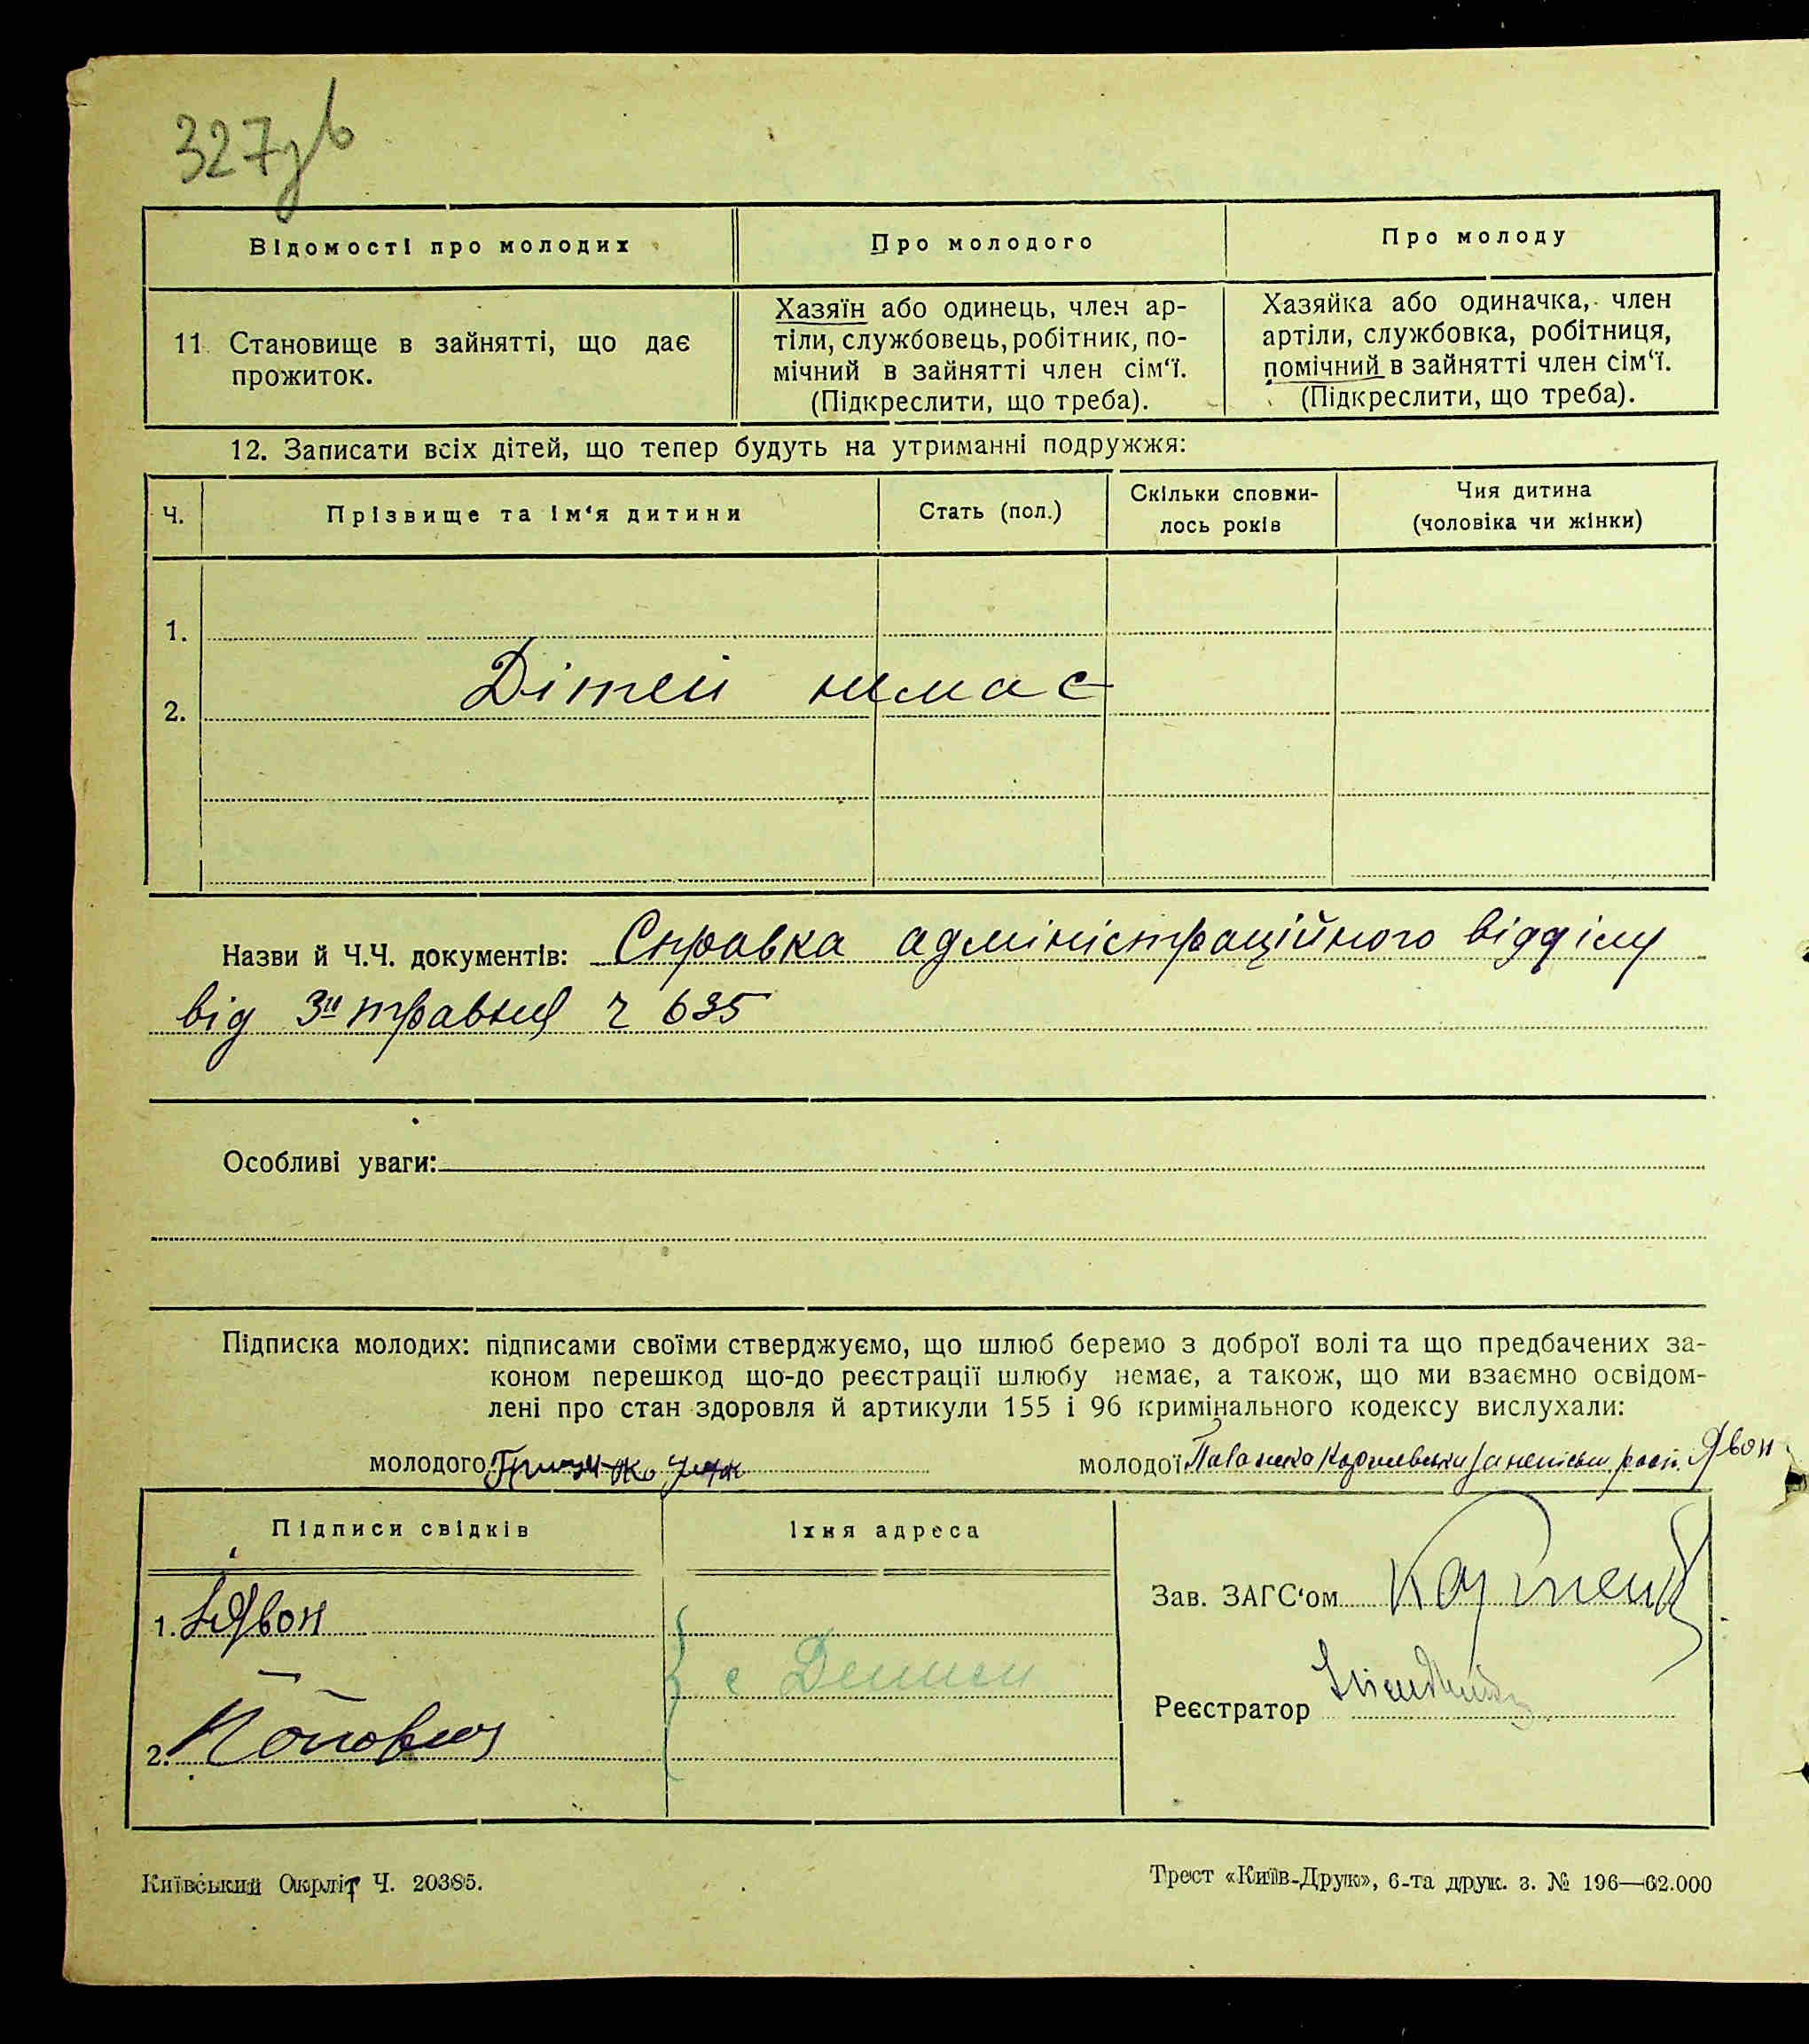 327зв
Відомості про молодих
Про молодого
Про молоду
11. Становище в зайнятті, що дає
прожиток.
Хазяїн або одинець, член ар-
тіли, службовець, робітник, по-
мічний в зайнятті член сім‘ї.
(Підкреслити, що треба).
Хазяйка або одиначка, член
артіли, службовка, робітниця,
помічний в зайнятті член сім‘ї.
(Підкреслити, що треба).
12. Записати всіх дітей, що тепер будуть на утриманні подружжя:
Ч.
Прізвище та ім‘я дитини
Стать (пол.)
Скільки сповни-
лось років
Чия дитина
(чоловіка чи жінки)
1.
2.
Дітей немає
Назви й Ч.Ч. документів: Справка адміністраційного відділу
від 3го травня ч 635
Особливі уваги:
Підписка молодих: підписами своїми стверджуємо, що шлюб беремо з доброї волі та що предбачених за-
коном перешкод що-до реєстрації шлюбу немає, а також, що ми взаємно освідом-
лені про стан здоровля й артикули 155 і 96 кримінального кодексу вислухали:
молодого
молодої неписьм. росп. Явон
Підписи свідків
Їхня адреса
1. Явон
2.
с Демми
Зав. ЗАГС‘ом
Реєстратор
Київський Окрліт Ч. 20385.
Трест «Київ-Друк», 6-та друк. з. № 196—62.000